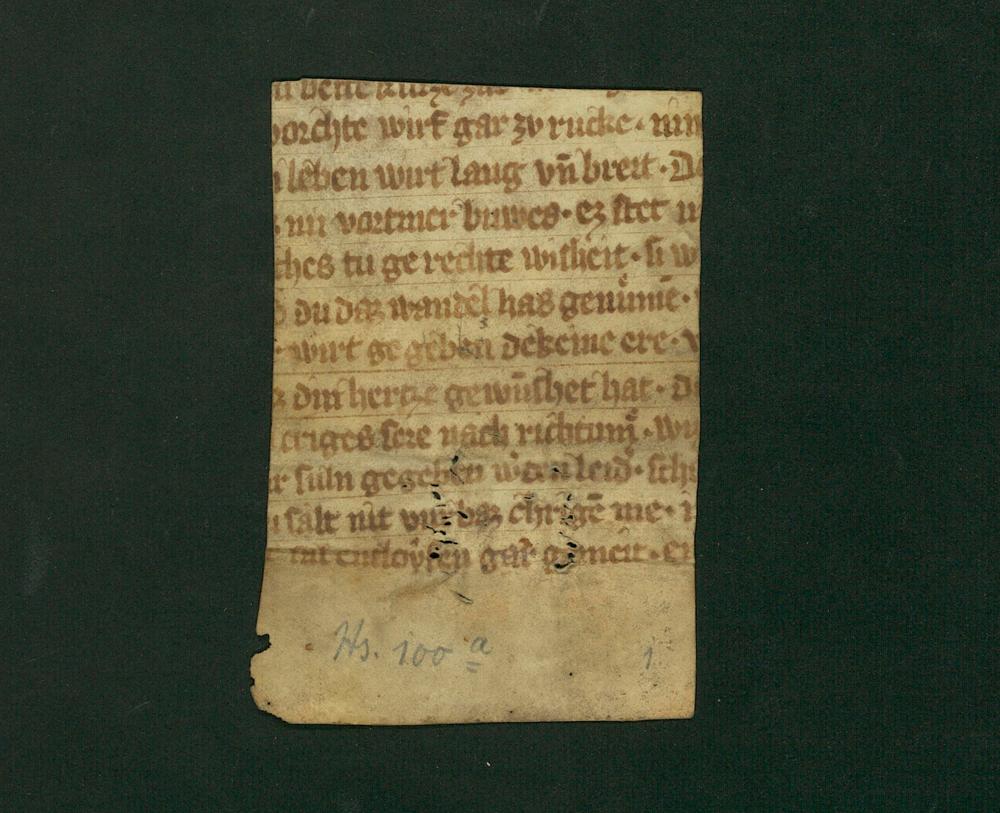 vorchte wirf gar zv rucke · nim
leben wirt lang vn̄ breit · De
nu vortmer buwes · ez stet
ches tu gerechte wisheit · si w
du daz wandel has genumē ·
wirt gegeben dekeine ere · v
din hertze gewūshet hat · de
criges sere nach richtung · wi
suln gegeben w̾den leid · sch
salt nit vurbaz chrigē me · i
entloysen gar gemeit · er
Hs. 100 a
1